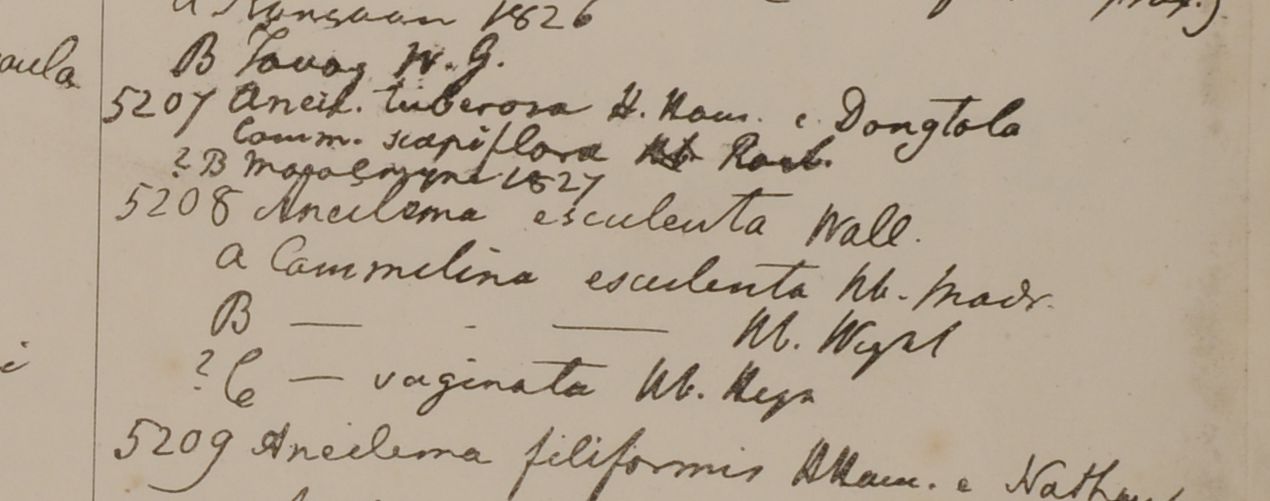 a Rangoon 1826
aula
B Tavoy W. G.
5207 Aneil. tuberosa H. Ham. e Dongtola
Comm. scapiflora Hb. Roxb.
? B 1827
5208 Aneilema esculenta Wall.
a Commelina esculenta Hb. Madr.
B — - — Hb. Wight
? C — vaginata Hb. Heyn
5209 Aneilema filiformis HHam. e
i